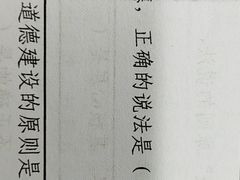 ，正确的说法是（
道德建设的原则是